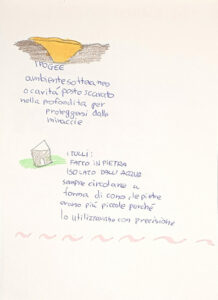 IPOGEE
ambiente sotterraneo
o cavità posto scavato
nella profondità per
proteggersi dalle
minaccie
I TULLI:
FATTO IN PIETRA
ISOLATO DALL'ACQUA
sempre circolare a
forma di cono, le pietre
erano più piccole perché
lo utilizzavano con precisione